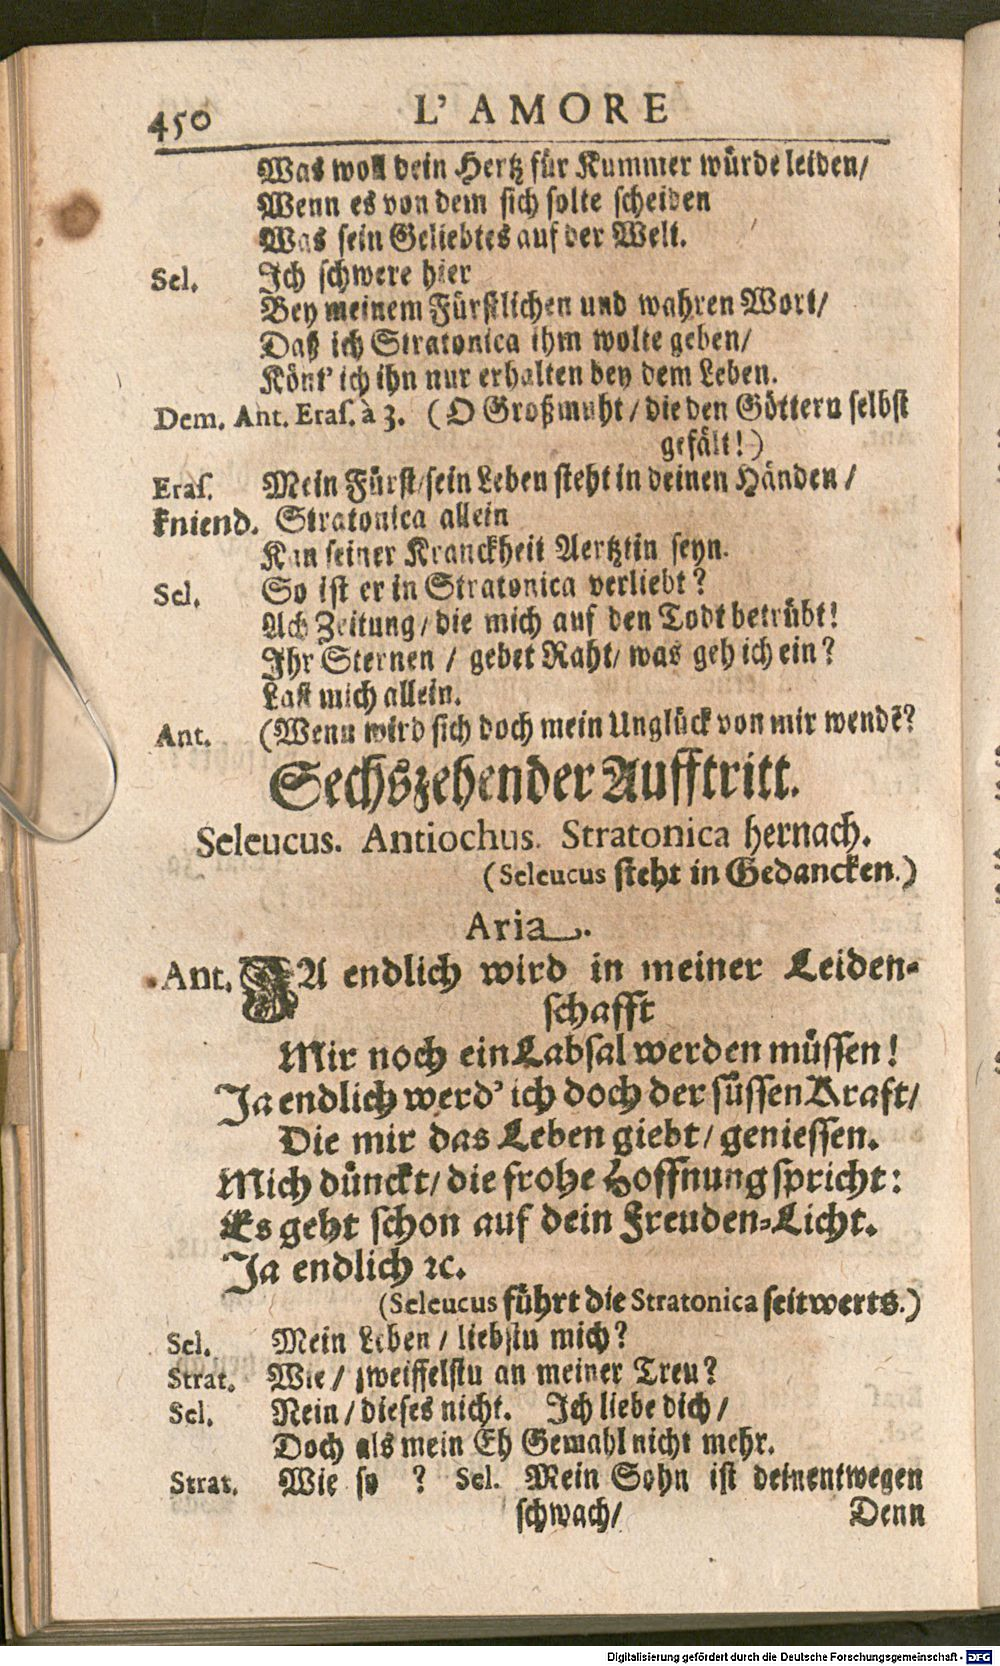 450 L' AMORE
Was woll dein Hertz für Kummer würde leiden/
Wenn es von dem sich solte scheiden
Was sein Geliebtes auf der Welt.
Sel. Ich schwere hier
Bey meinem Fürstlichen und wahren Wort/
Daß ich Stratonica ihm wolte geben/
Könt' ich ihn nur erhalten bey dem Leben.
Dem. Ant. Eras. à 3. (O Großmuht/ die den Göttern selbst
gefält!)
Eras. Mein Fürst/ sein Leben steht in deinen Händen/
kniend. Stratonica allein
Kan seiner Kranckheit Aertztin seyn.
Sel. So ist er in Stratonica verliebt?
Ach Zeitung/ die mich auf den Todt betrübt!
Ihr Sternen / gebet Raht/ was geh ich ein?
Last mich allein.
Ant. (Wenn wird sich doch mein Unglück von mir wendẽ?
Sechszehender Aufftritt.
Seleucus. Antiochus. Stratonica hernach.
(Seleucus steht in Gedancken.)
Aria.
Ant. JA endlich wird in meiner Leiden-
schafft
Mir noch ein Labsal werden müssen!
Ja endlich werd' ich doch der süssen Kraft/
Die mir das Leben giebt/ geniessen.
Mich dünckt/ die frohe Hoffnung spricht:
Es geht schon auf dein Freuden-Licht.
Ja endlich ꝛc.
(Seleucus führt die Stratonica seitwerts.)
Sel. Mein Leben / liebstu mich?
Strat. Wie / zweiffelstu an meiner Treu?
Sel. Nein / dieses nicht. Ich liebe dich /
Doch als mein Eh Gemahl nicht mehr.
Strat. Wie so ? Sel. Mein Sohn ist deinentwegen
schwach/ Denn
Digitalisierung gefördert durch die Deutsche Forschungsgemeinschaft - DFG